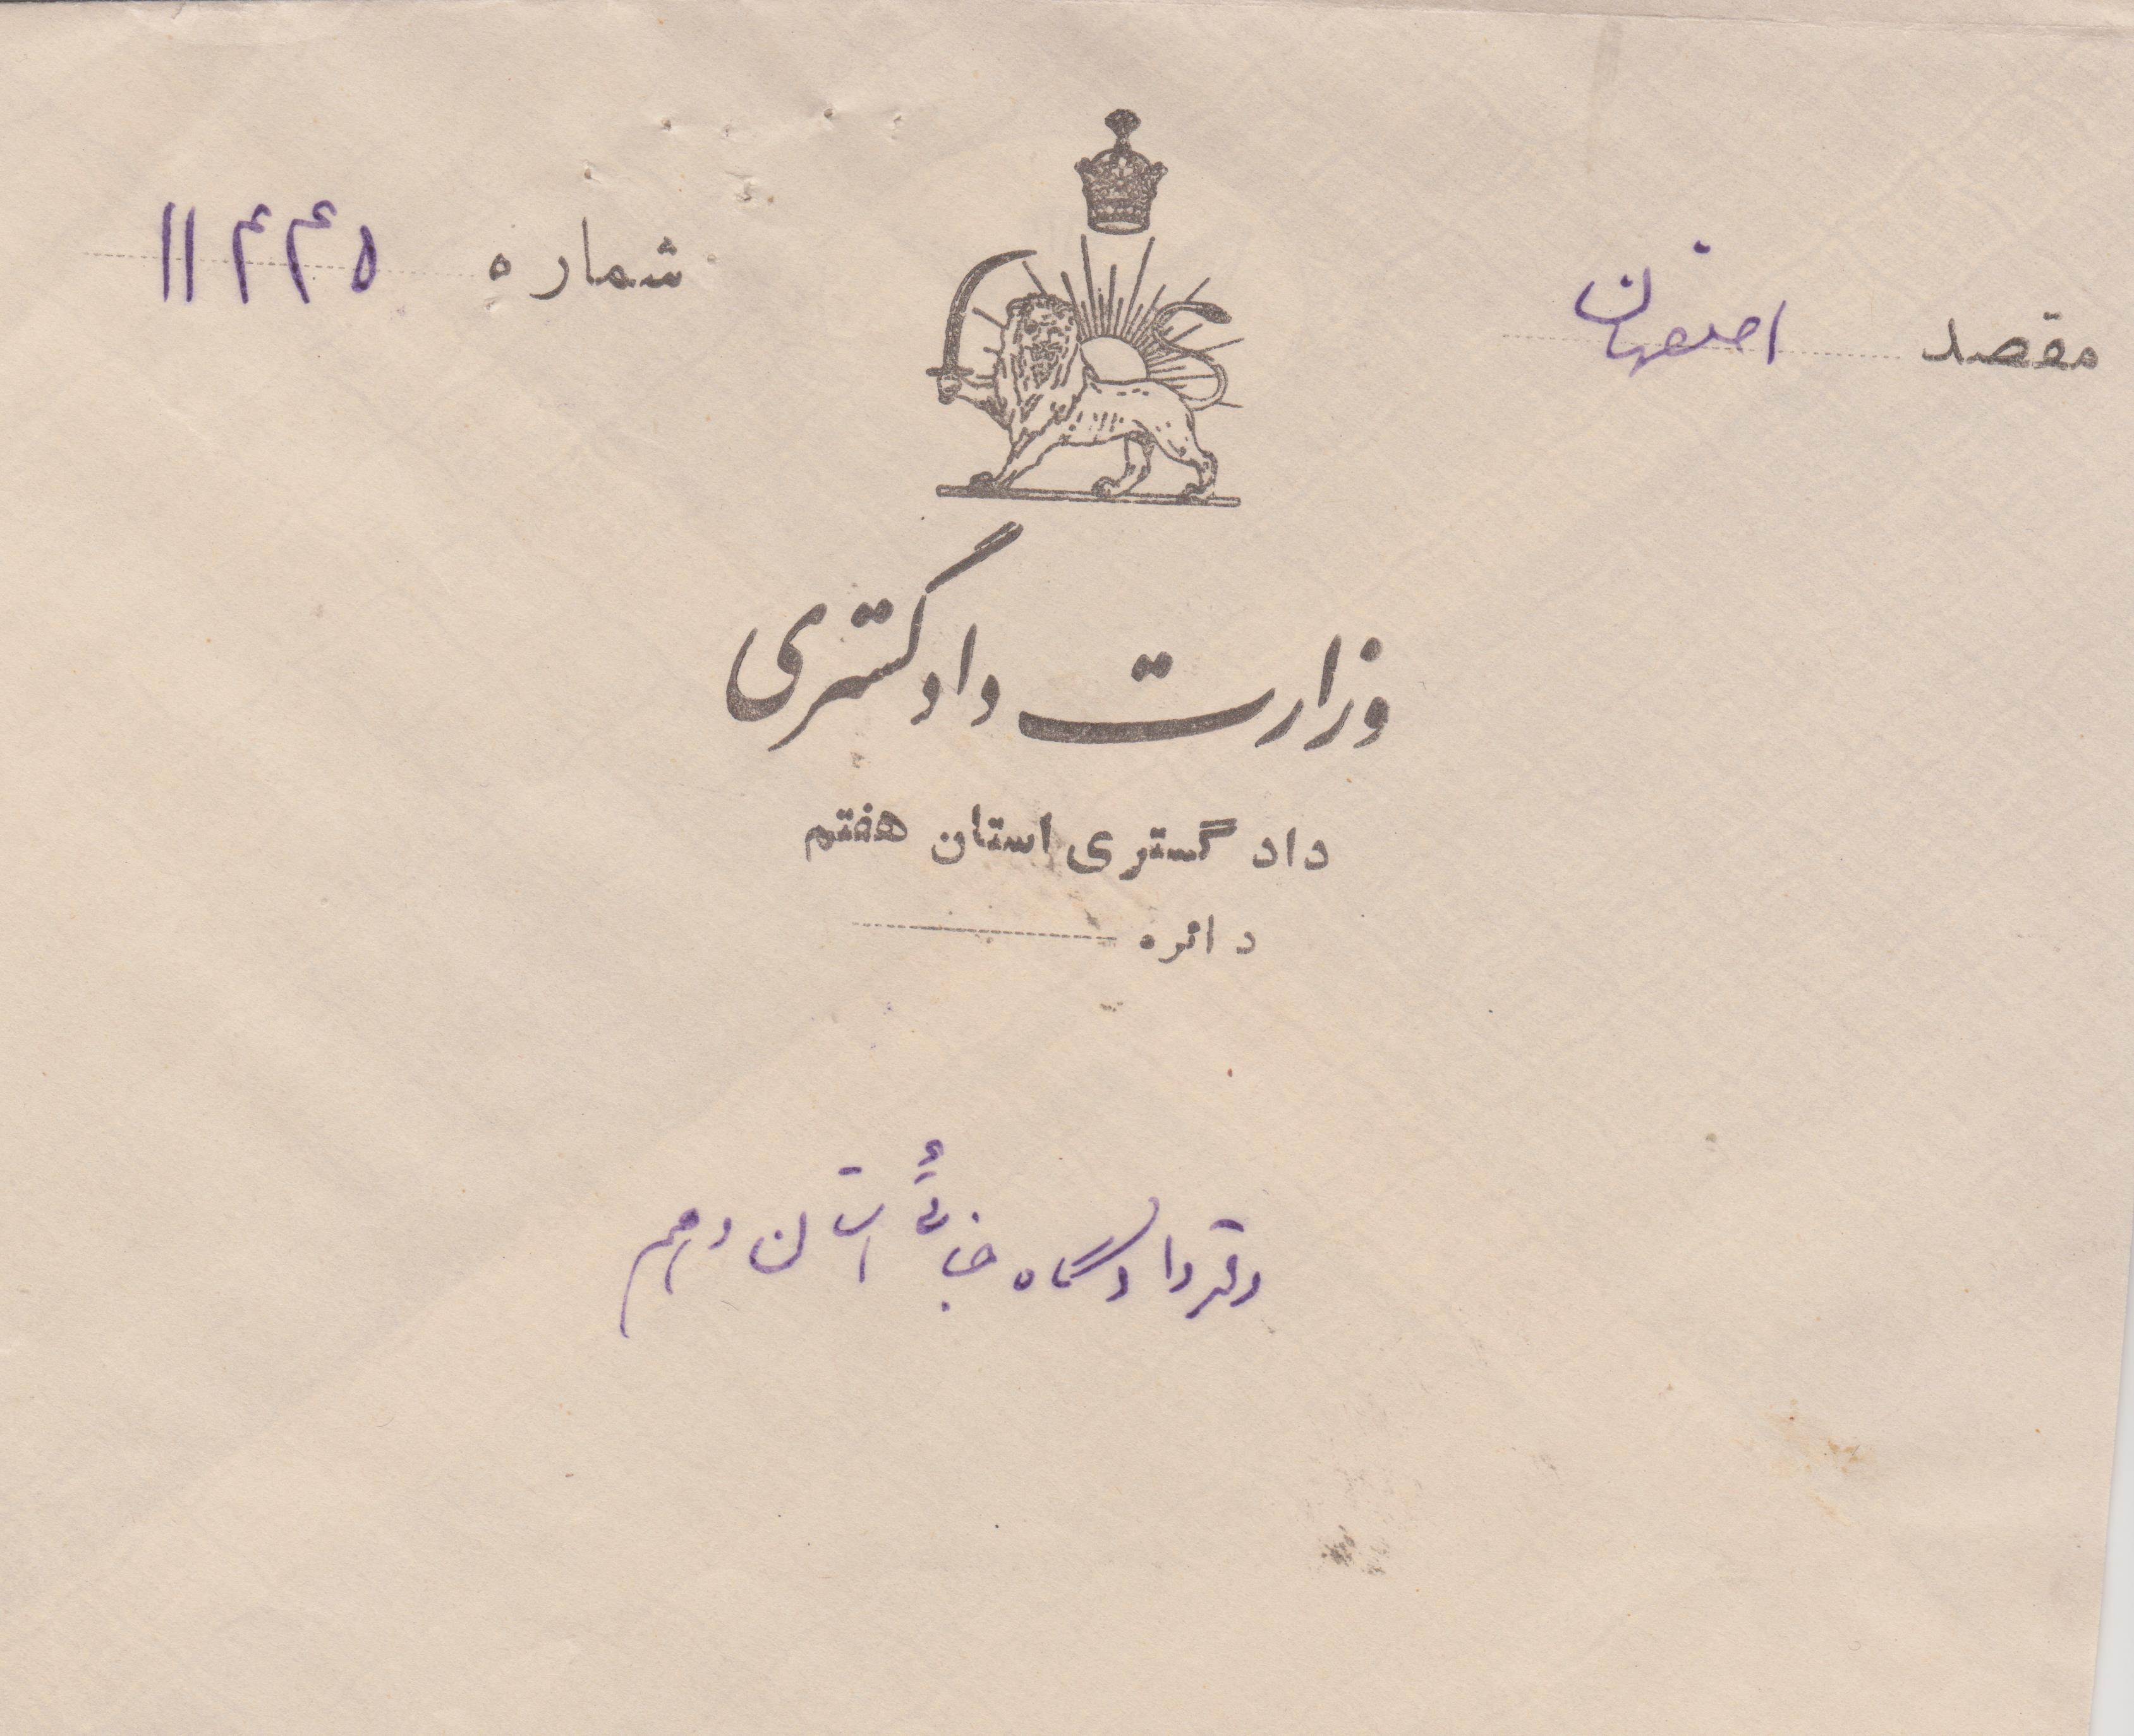 مقصد اصفهان
شماره ۱۱۴۴۵
وزارت دادگستری
دادگستری استان هفتم
دائره
دفتر دادگاه جنائی استان دهم